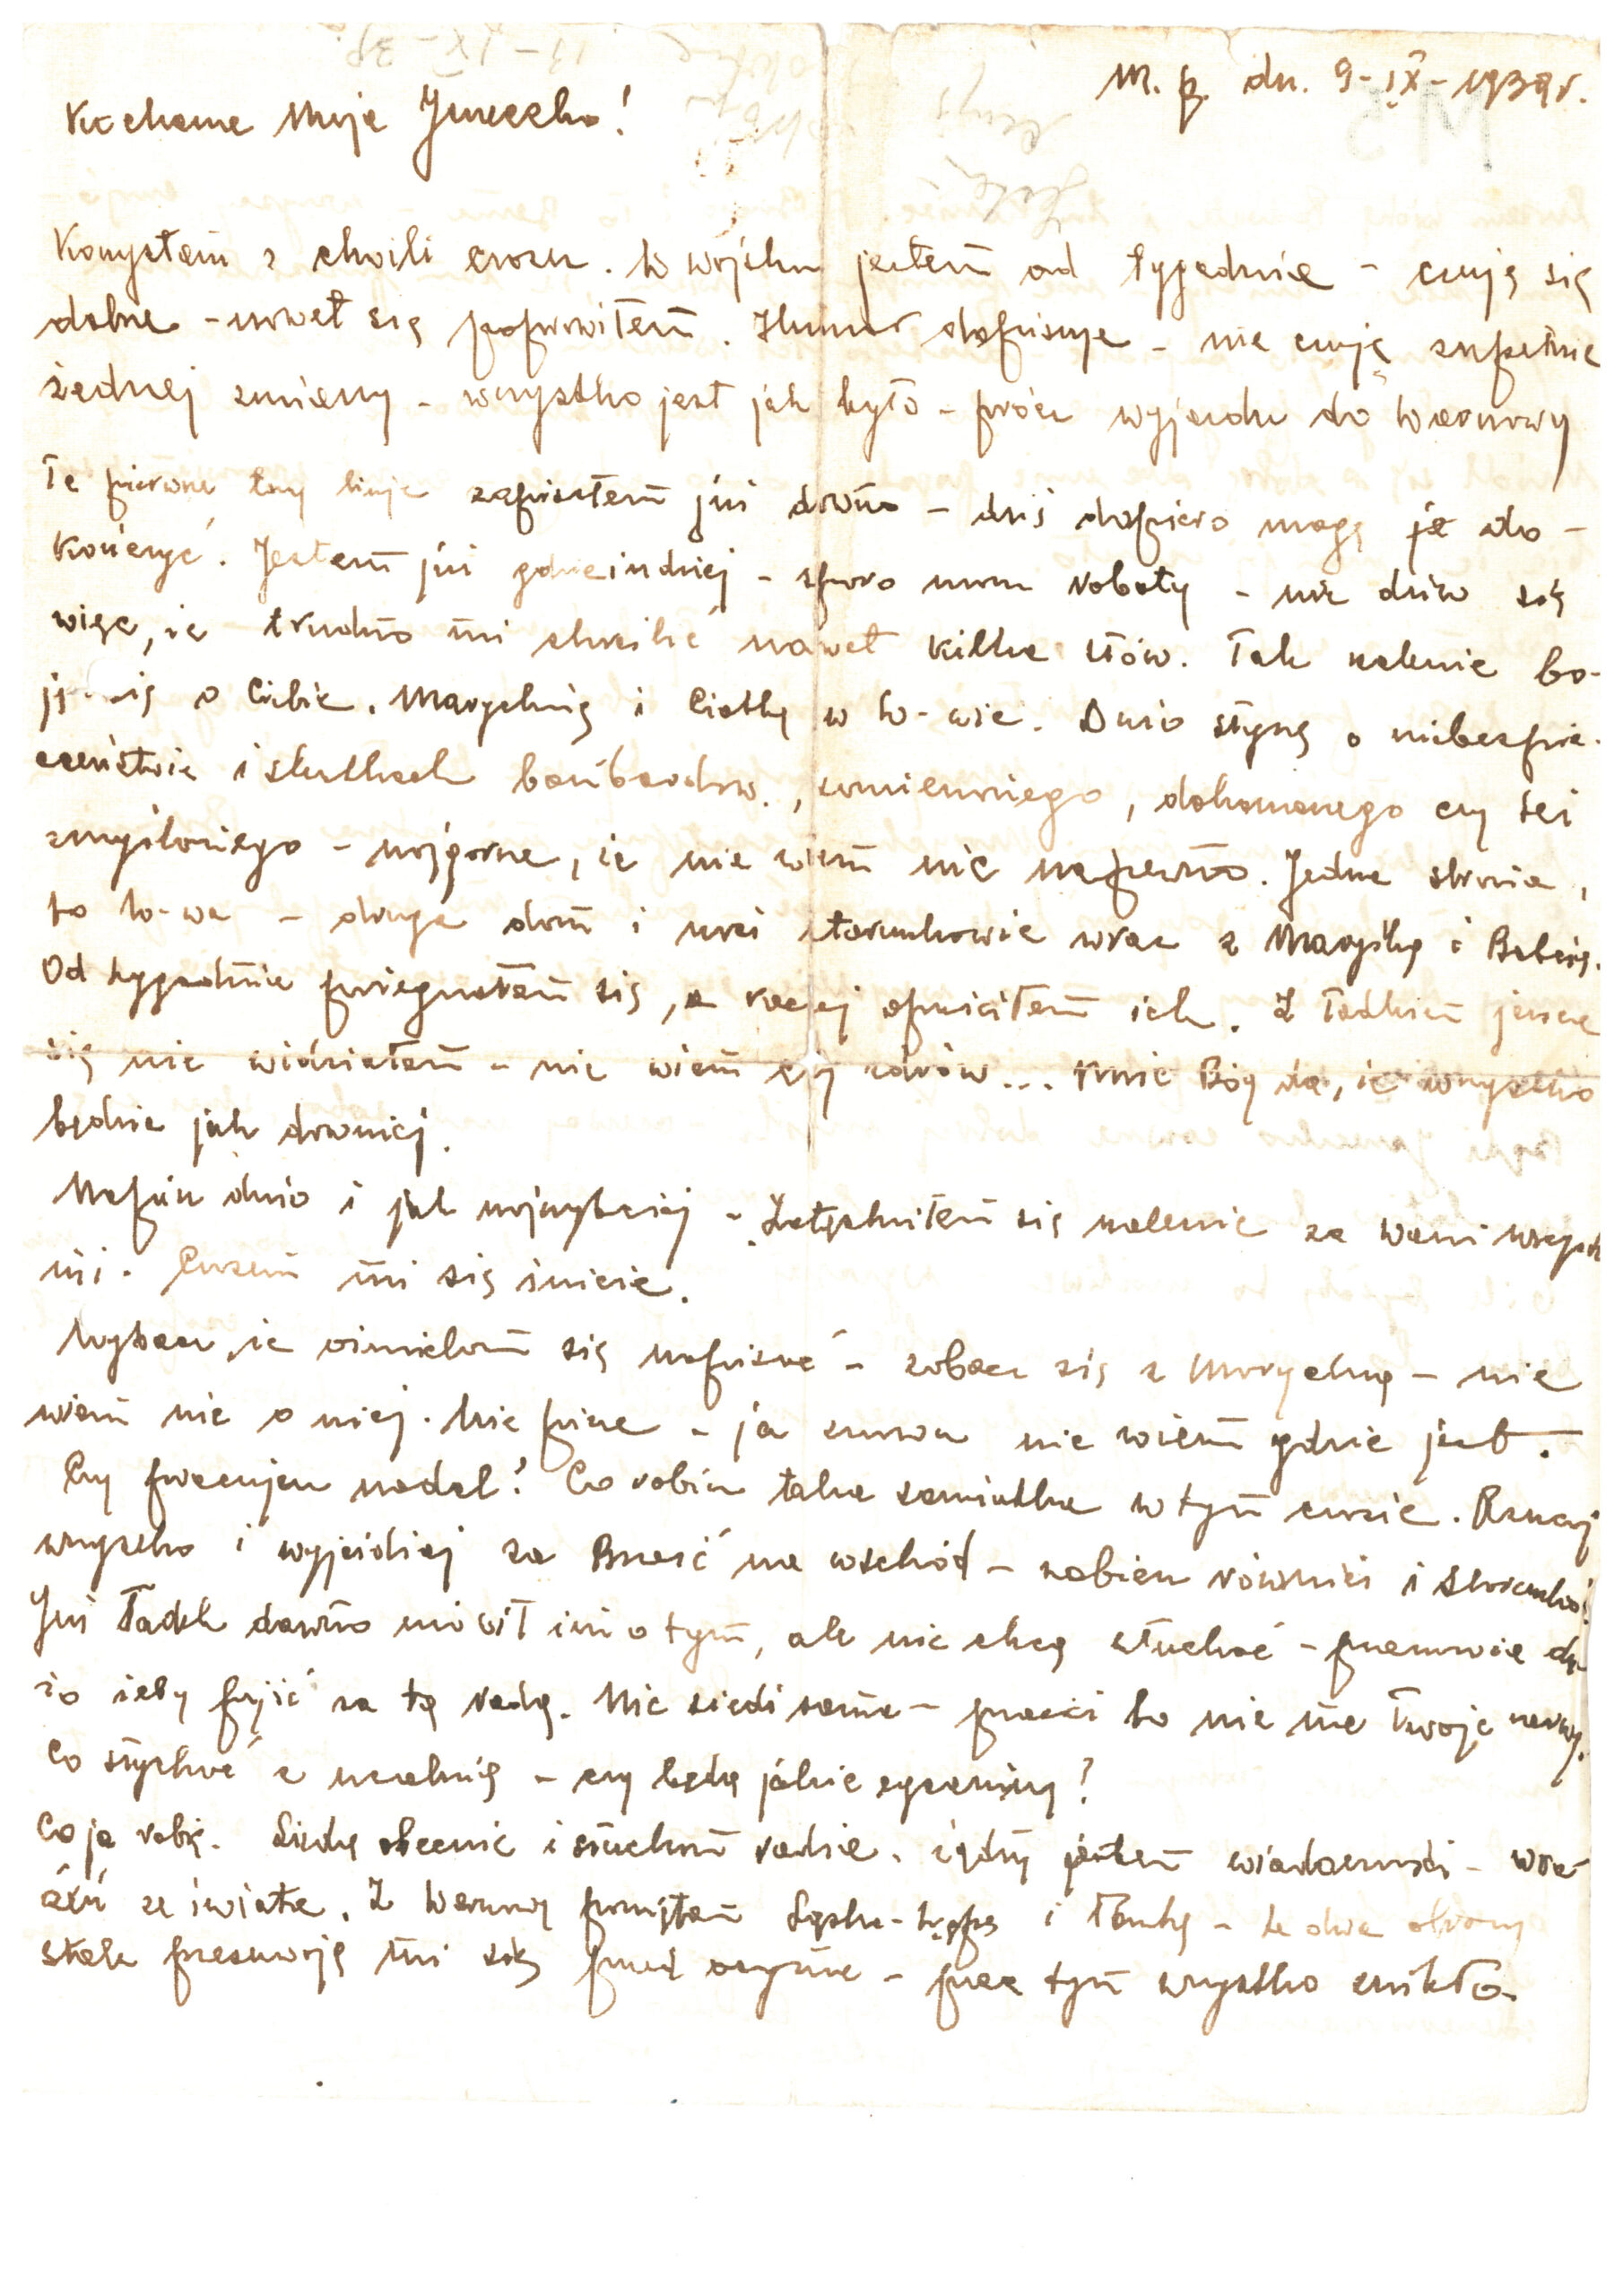 M. p. dn. 9-IX-1939 r.
Kochana Moja Jureczko!
Korzystam z chwili czasu. W wojsku jestem od tygodnia – czuję się
dobrze – nawet się poprawiłem. Humor dopisuje – nie czuję zupełnie
żadnej zmiany – wszystko jest jak było – prócz wyjazdu do Warszawy
Te pierwsze trzy linje zapisałem już dawno – dziś dopiero mogę je do-
kończyć. Jestem już gdzieindziej – sporo mam roboty – nie dziw się
więc, że trudno mi skreślić nawet kilka słów. Tak szalenie bo-
ję się o Ciebie, Marychnę i Ciotkę w W-wie. Dużo słyszę o niebezpie-
czeństwie i skutkach bombardow., zamierzonego, dokonanego czy też
zmyślonego – najgorsze, że nie wiem nic napewno. Jedna strona,
to W-wa – druga dom i moi staruszkowie wraz z Maryśką i Babcią.
Od tygodnia pożegnałem się, a raczej opuściłem ich. Z Tadkiem jeszcze
się nie widziałem – nie wiem czy zdrów... Może Bóg da, że wszystko
będzie jak dawniej.
Napisz dużo i jak najszybciej – Zatęskniłem się szalenie za wami wszyst
mi. Czasem mi się śnicie.
Wybacz, że ośmielam się napisać – zobacz się z Marychną – nie
wiem nic o niej. Nie pisze – ja znowu nie wiem gdzie jest.
Czy pracujesz nadal? Co robisz taka samiutka w tym czasie. Rzucaj
wszystko i wyjeżdżaj za Brześć na wschód – zabierz również i
Już Tadek dawno mówił im o tym, ale nie chcą słuchać – przemawia du-
żo żeby pójść za tą radą. Nie siedź sama – przecież to nie na Twoje nerwy.
Co słychać z uczelnią – czy będą jakie egzaminy?
Co ja robię. Siedzę obecnie i słucham radia. żądny jestem wiadomości – wra
żeń ze świata. Z Warszawy i – te dwa obrazy
stale przesuwają mi się przed oczyma – poza tym wszystko znikło.